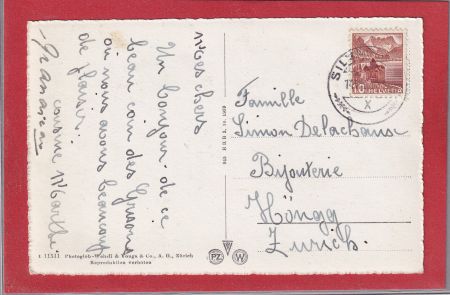 M'ves chers
Un bonjour de ce
beau coin des Grisons
où nous avons beaucoup
de plaisir.
cousine Marthe
Famille
Simon Delachaux
Bijouterie
Höngg
Zürich.
SILS
X
10 HELVETIA
1 11511 Photoglob-Wehrli & Vouga & Co., A. G., Zürich
Reproduktion verboten
PZ W